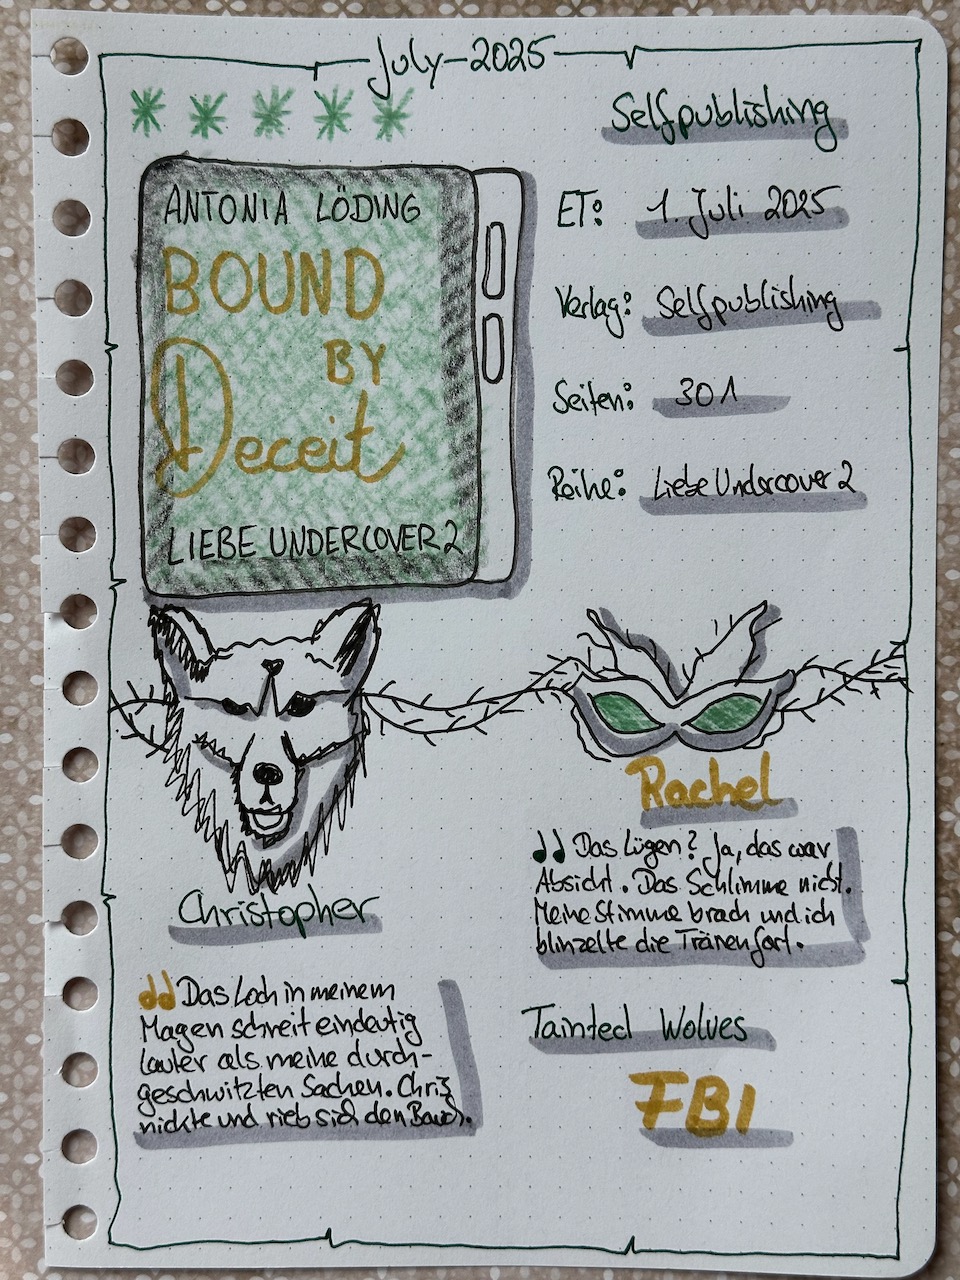 July-2025
Selfpublishing
ANTONIA LÖDING
BOUND
BY
Deceit
LIEBE UNDERCOVER 2
ET: 1. Juli 2025
Verlag: Selfpublishing
Seiten: 301
Reihe: Liebe Undercover 2
Christopher
Das Loch in meinem
Magen schreit eindeutig
lauter als meine durch-
geschwitzten Sachen. Chris
nickte und rieb sich den Bauch.
Rachel
Das Lügen? Ja, das war
Absicht. Das Schlimme nicht.
Meine Stimme brach und ich
blinzelte die Tränen fort.
Tainted Wolves
FBI